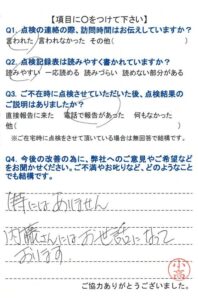 【項目に〇をつけて下さい】
Q1. 点検の連絡の際、訪問時間はお伝えしていますか?
言われた 言われなかった その他(
Q2. 点検記録表は読みやすく書かれていますか?
読みやすい 一応読める 読みづらい 読めない部分がある
Q3. ご不在時に点検させていただいた後、点検結果の
ご説明はありましたか?
直接報告に来た 電話で報告があった 何もなかった
他( )
※ご在宅時に点検させて頂いている場合は無回答で結構です。
Q4. 今後の改善の為に、弊社へのご意見やご希望など
をお聞かせください。ご不満やお叱りなど、どのようなこと
でも結構です。
特にはありません
内藤さんにはお世話になって
おります。
小高
ご協力ありがとうございました。